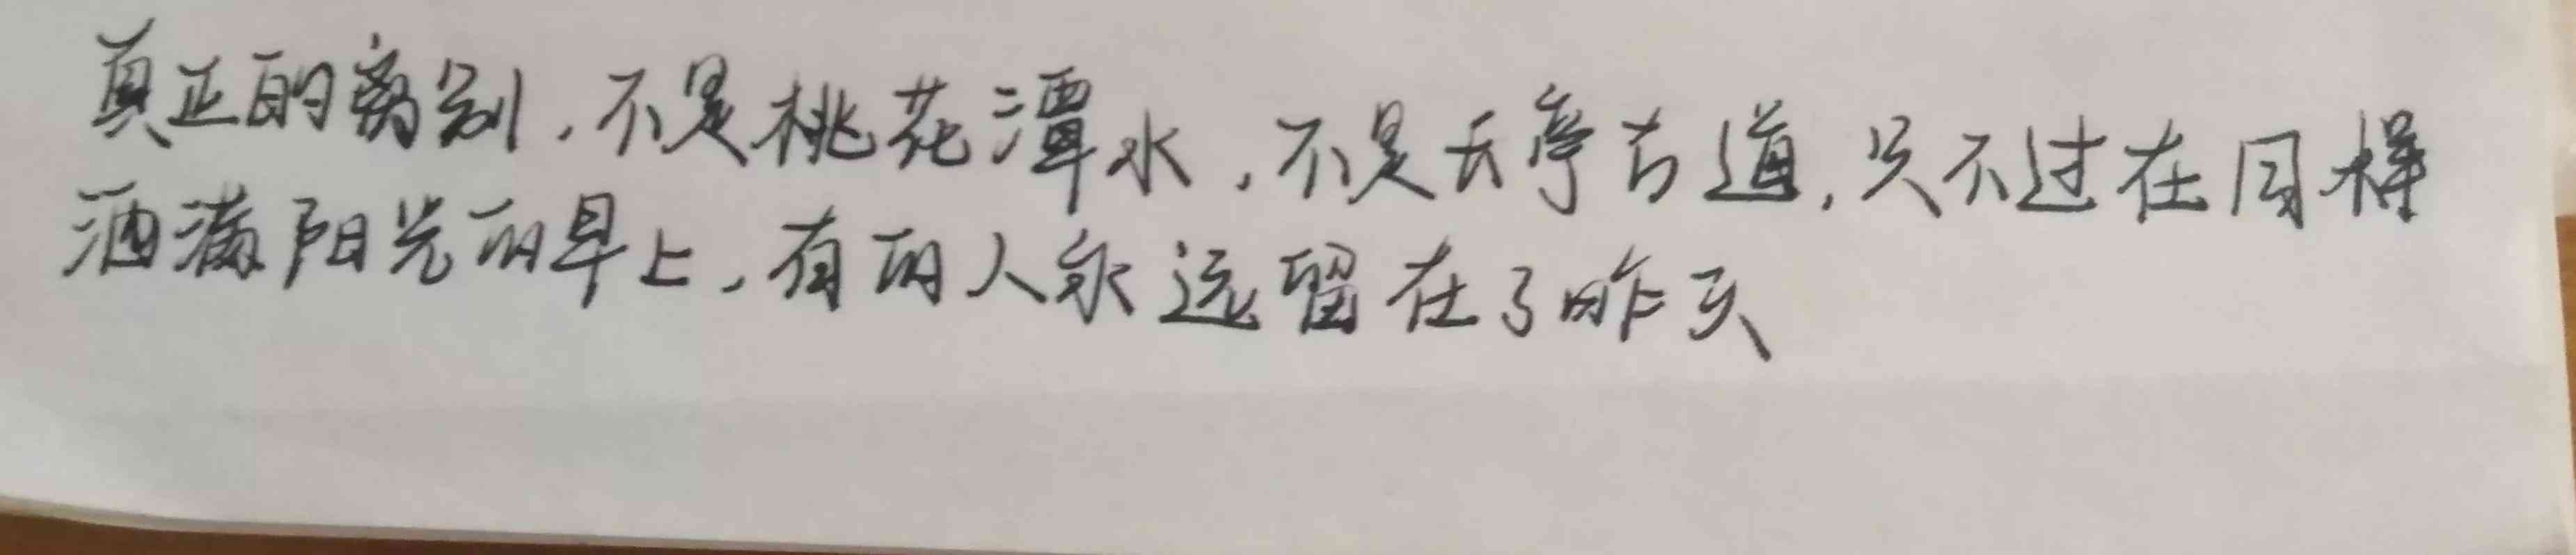 真正的离别,不是桃花潭水,不是长亭古道,只不过在同样
洒满阳光的早上,有的人永远留在了昨天